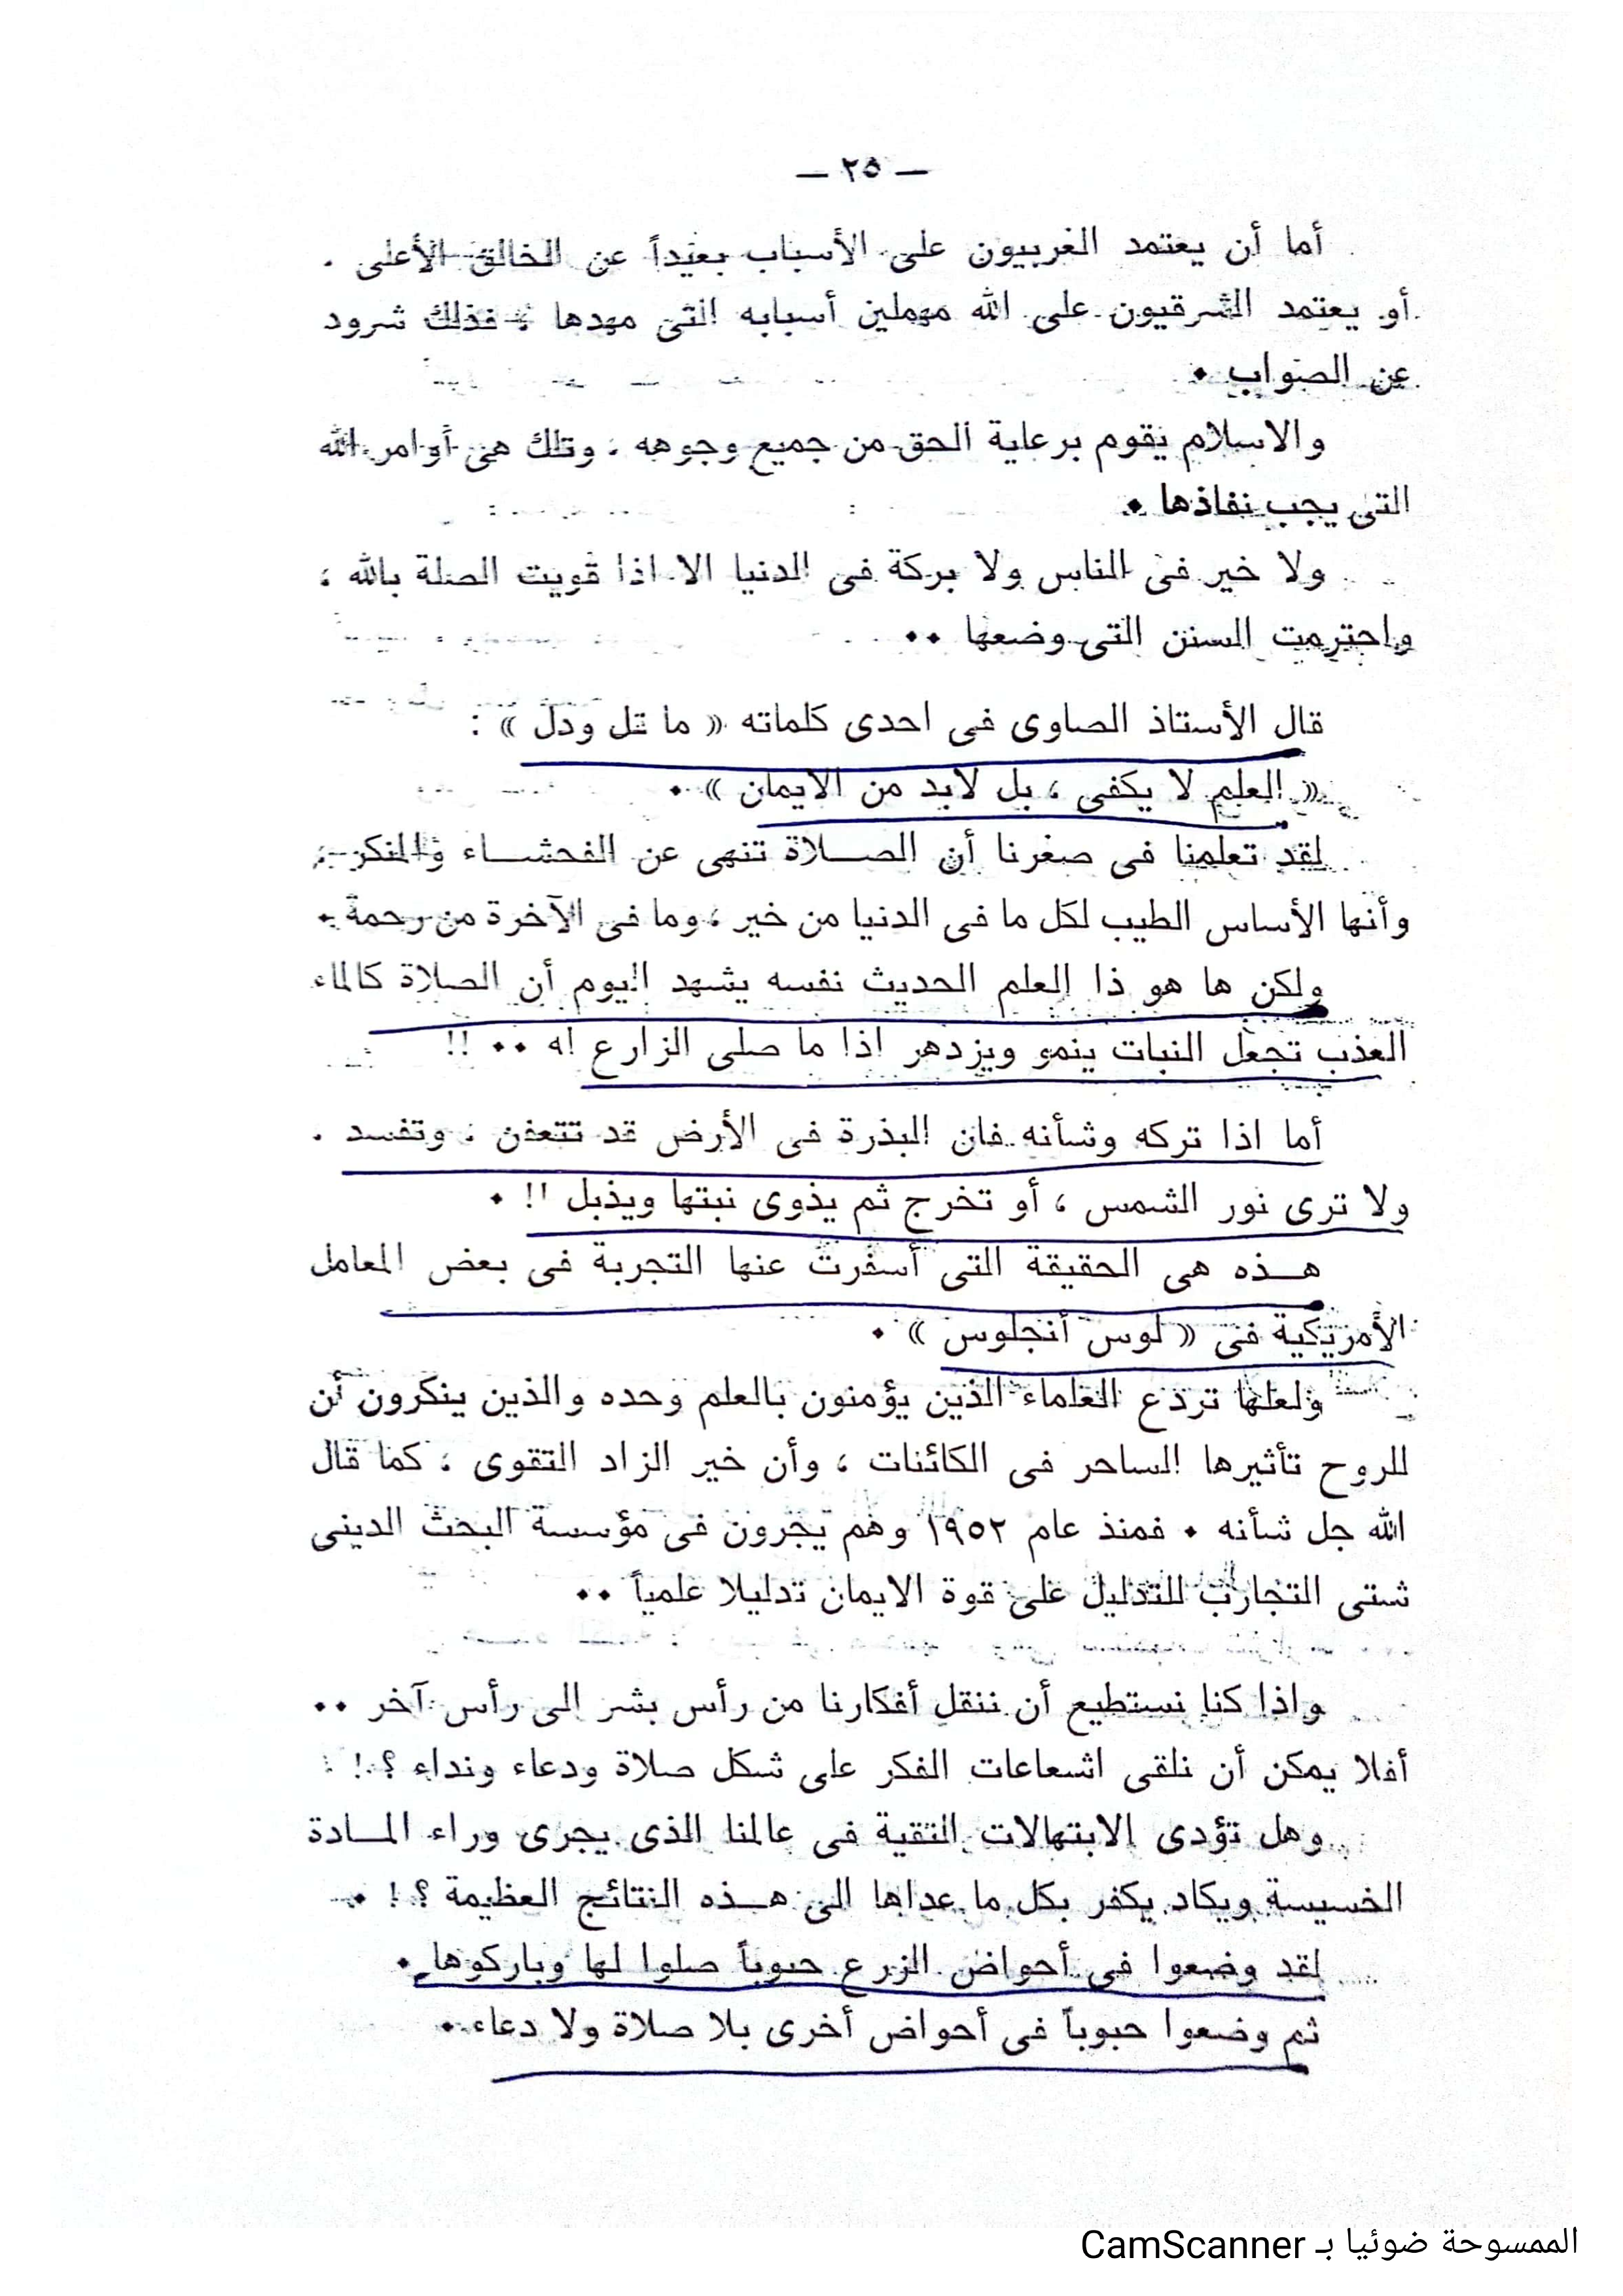 — ٢٥ —
أما أن يعتمد الغربيون على الأسباب بعيداً عن الخالق الأعلى .
أو يعتمد الشرقيون على الله مهملين أسبابه التى مهدها ؛ فذلك شرود
عن الصواب .
والاسلام يقوم برعاية الحق من جميع وجوهه ، وتلك هى أوامر الله
التى يجب نفاذها .
ولا خير فى الناس ولا بركة فى الدنيا الا اذا قويت الصلة بالله ،
واحترمت السنن التى وضعها ..
قال الأستاذ الصاوى فى احدى كلماته « ما قل ودل » :
« العلم لا يكفى ، بل لابد من الايمان » .
لقد تعلمنا فى صغرنا أن الصــلاة تنهى عن الفحشــاء والمنكر ،
وأنها الأساس الطيب لكل ما فى الدنيا من خير ، وما فى الآخرة من رحمة .
ولكن ها هو ذا العلم الحديث نفسه يشهد اليوم أن الصلاة كالماء
العذب تجعل النبات ينمو ويزدهر اذا ما صلى الزارع له .. !!
أما اذا تركه وشأنه فان البذرة فى الأرض قد تتعفن ، وتفسد .
ولا ترى نور الشمس ، أو تخرج ثم يذوى نبتها ويذبل !! .
هــذه هى الحقيقة التى أسفرت عنها التجربة فى بعض المعامل
الأمريكية فى « لوس أنجلوس » .
ولعلها تردع العلماء الذين يؤمنون بالعلم وحده والذين ينكرون أن
للروح تأثيرها الساحر فى الكائنات ، وأن خير الزاد التقوى ، كما قال
الله جل شأنه . فمنذ عام ١٩٥٢ وهم يجرون فى مؤسسة البحث الدينى
شتى التجارب للتدليل على قوة الايمان تدليلا علمياً ..
واذا كنا نستطيع أن ننقل أفكارنا من رأس بشر الى رأس آخر ..
أفلا يمكن أن نلقى اشعاعات الفكر على شكل صلاة ودعاء ونداء ؟ !
وهل تؤدى الابتهالات النقية فى عالمنا الذى يجرى وراء المــادة
الخسيسة ويكاد يكفر بكل ما عداها الى هــذه النتائج العظيمة ؟ ! .
لقد وضعوا فى أحواض الزرع حبوباً صلوا لها وباركوها .
ثم وضعوا حبوباً فى أحواض أخرى بلا صلاة ولا دعاء .
الممسوحة ضوئيا بـ CamScanner